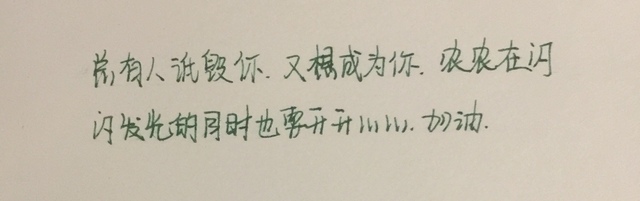 总有人诋毁你.又想成为你.农农在闪
闪发光的同时也要开开心心.加油.